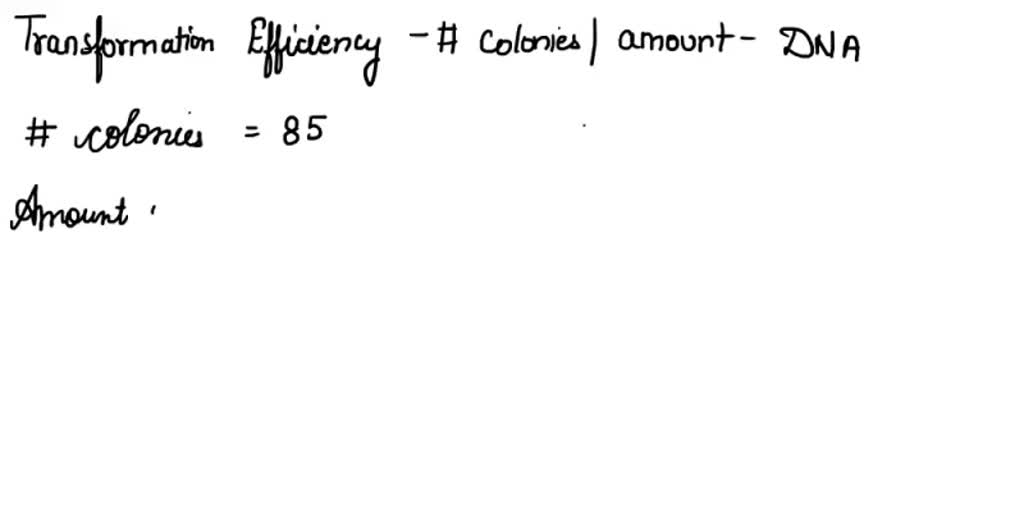 Transformation Efficiency - # Colonies | amount - DNA
# colonies = 85
Amount